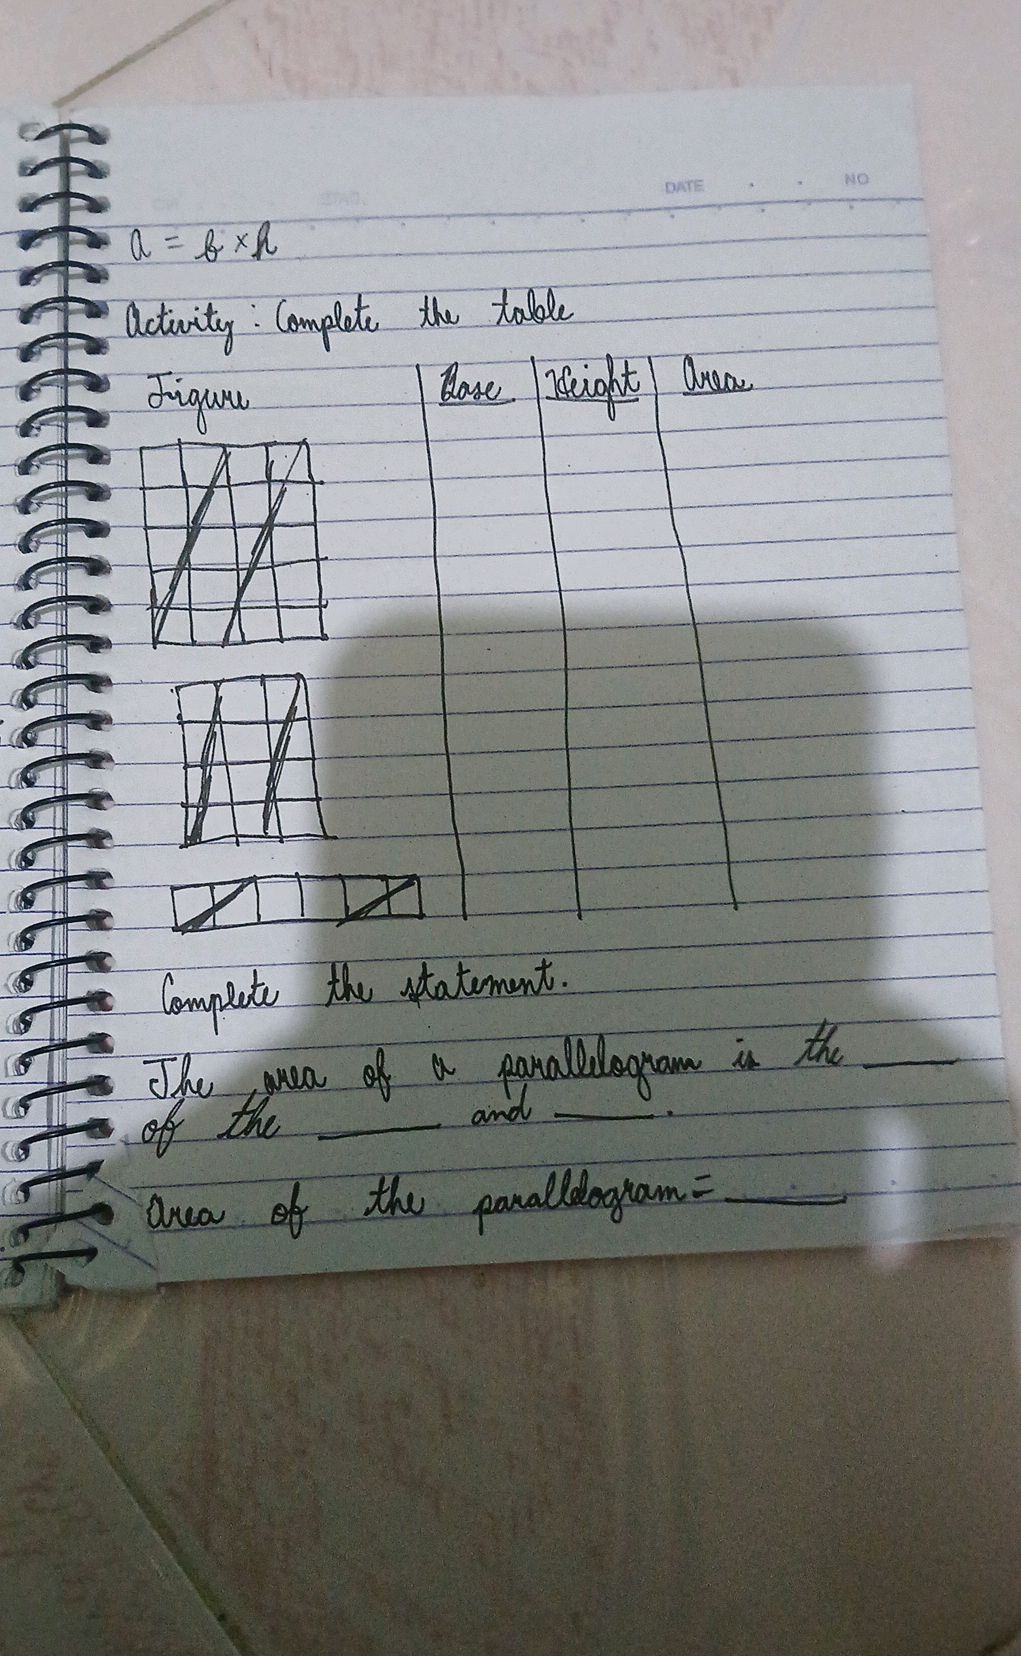 DATE . . NO
a = b × h
Activity : Complete the table
Figure Base Height Area
Complete the statement.
The area of a parallelogram is the ____
of the ____ and ____.
Area of the parallelogram = ____